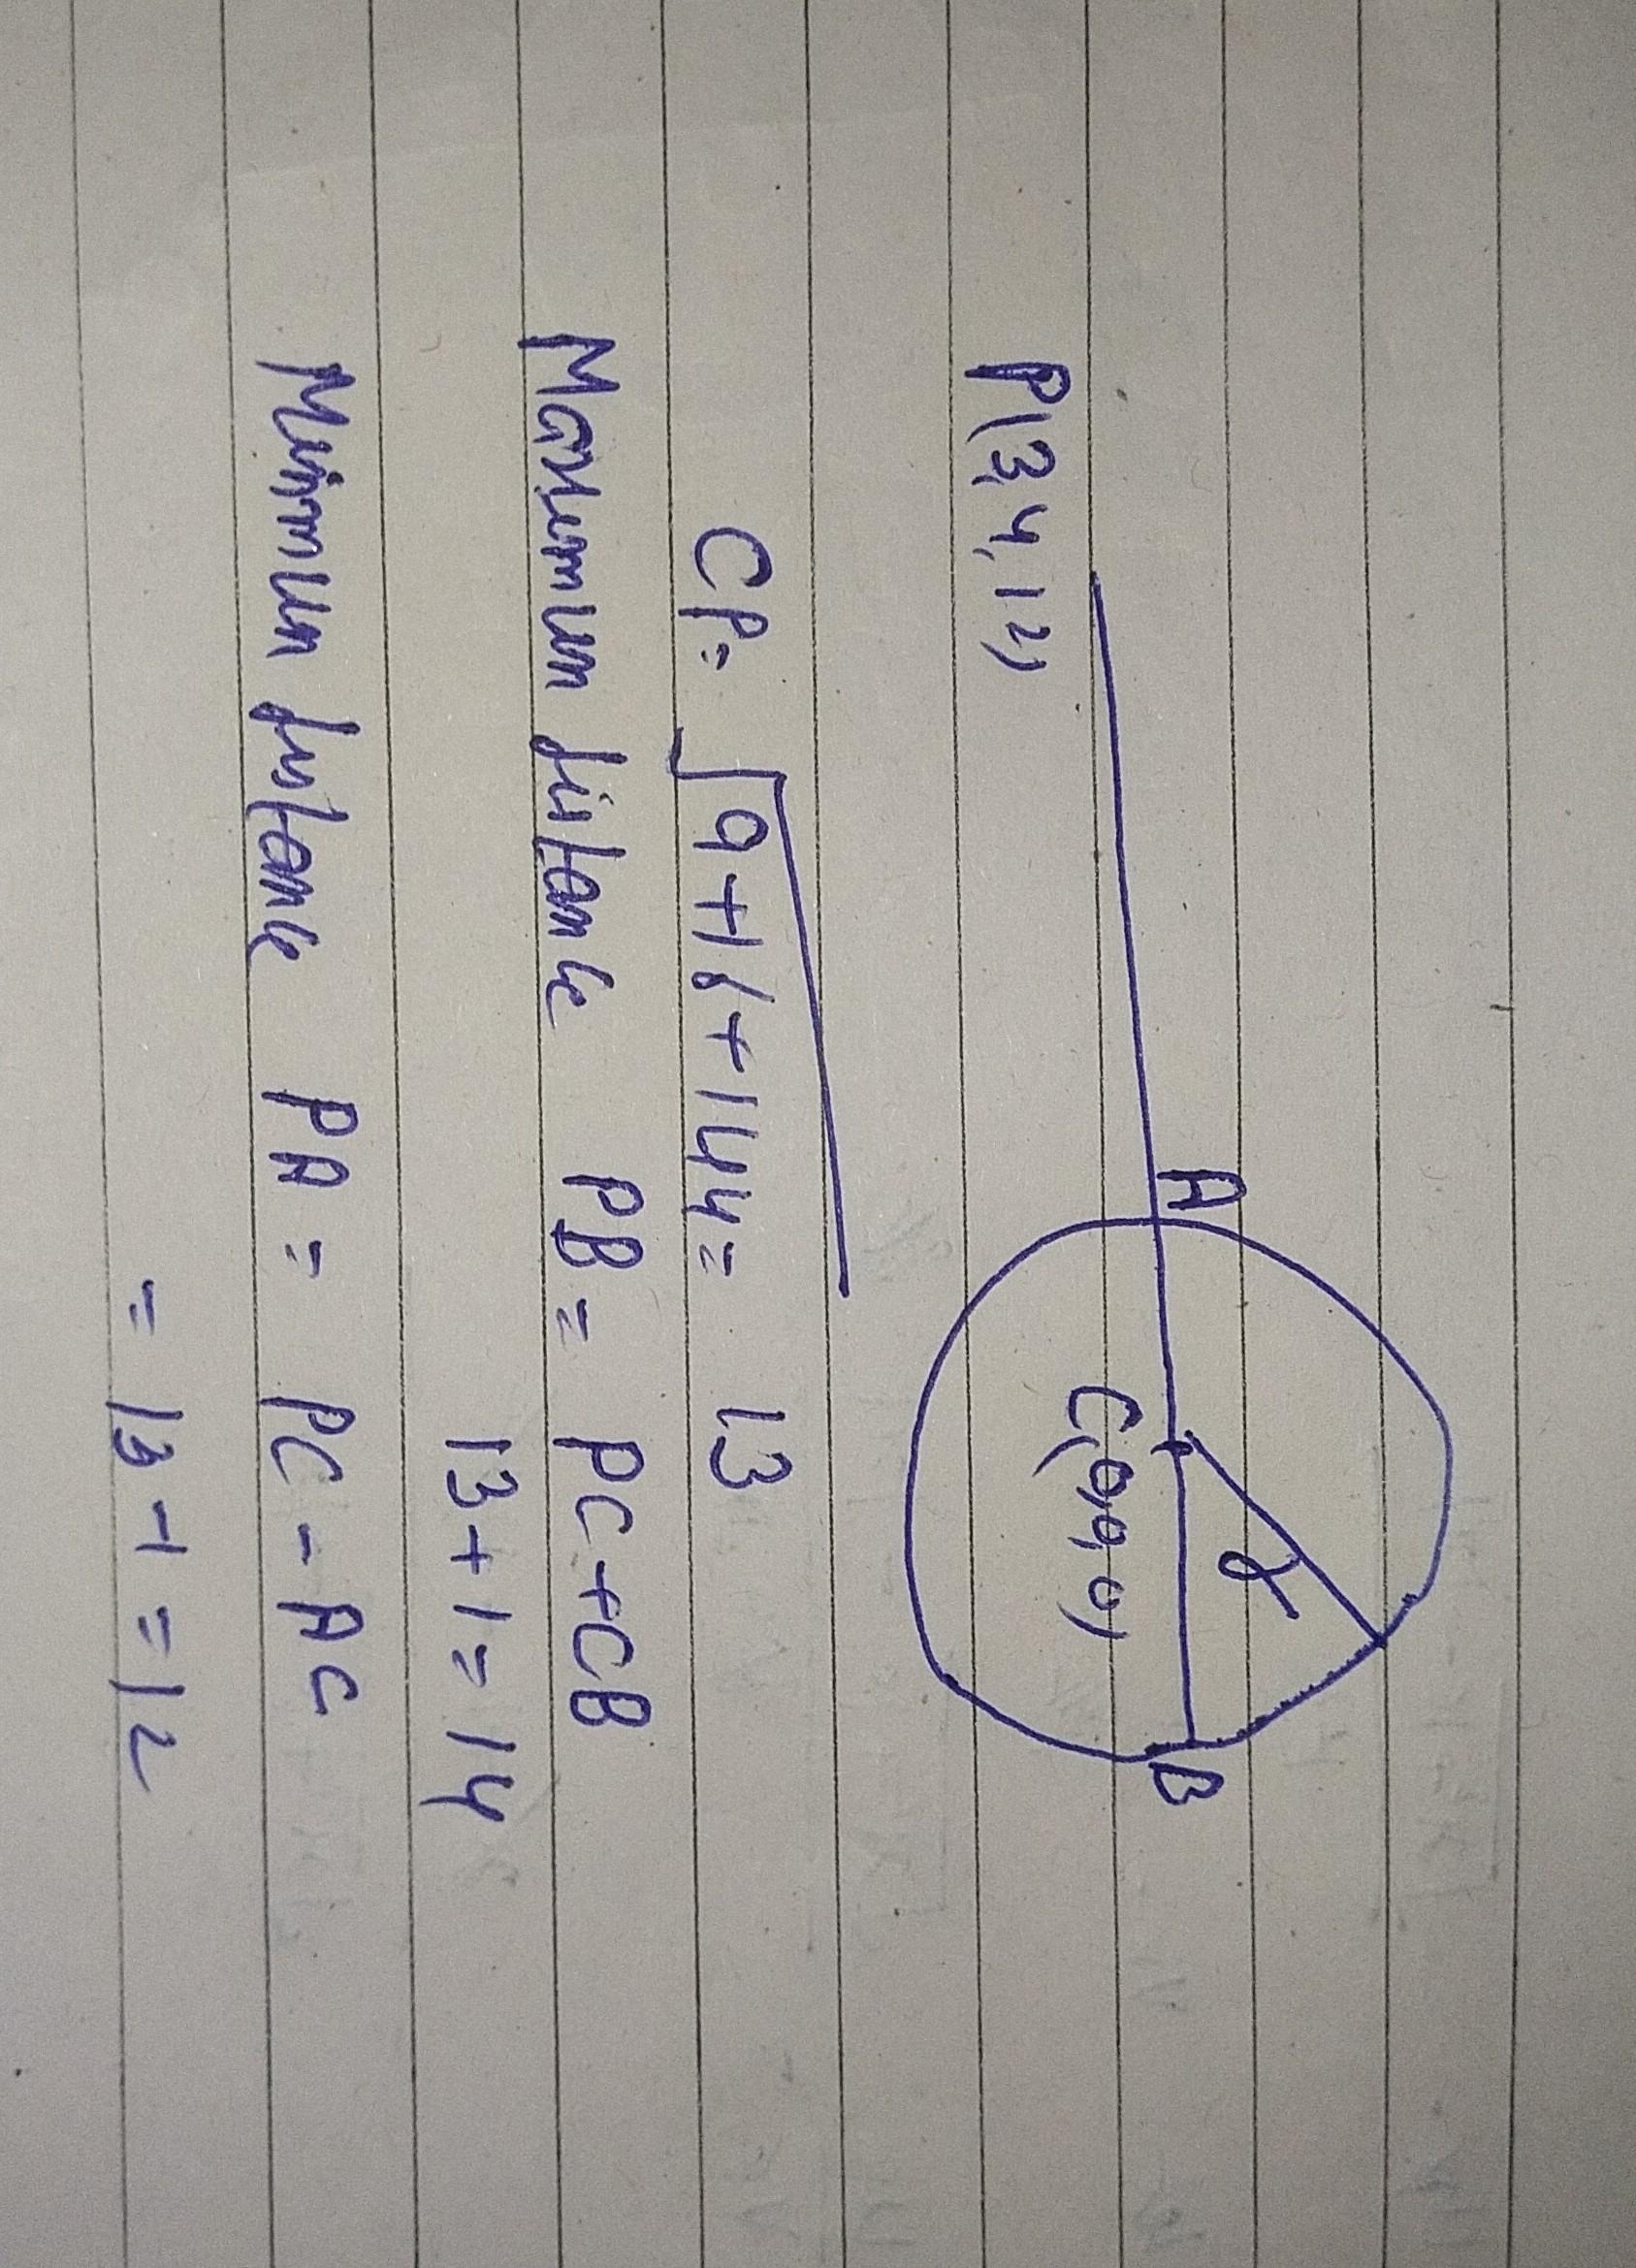 A
B
r
P(3,4,12)
C(0,0,0)
CP= √9+16+144= 13
Maximum distance PB= PC+CB
13+1=14
Minimum distance PA= PC-AC
= 13-1=12